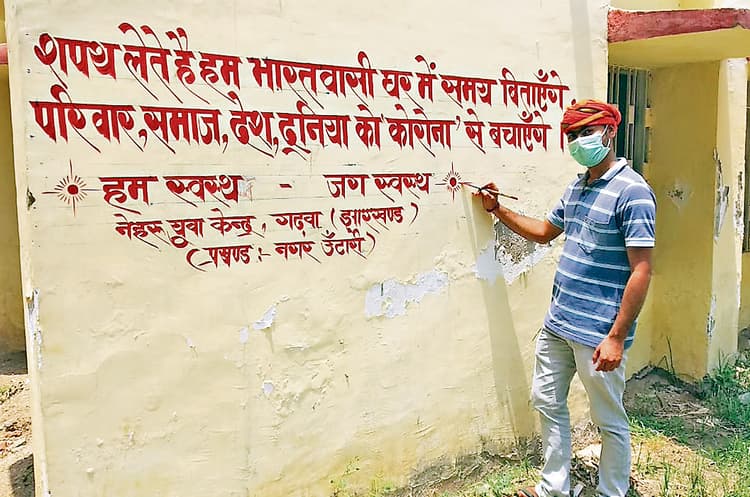 शपथ लेते है हम भारतवासी घर में समय बिताएँगे,
परिवार, समाज, देश, दुनिया को 'कोरोना' से बचाएँगे।
हम स्वस्थ - जग स्वस्थ
नेहरू युवा केन्द्र, गढ़वा (झारखण्ड)
(प्रखण्ड :- नगर ऊँटारी)